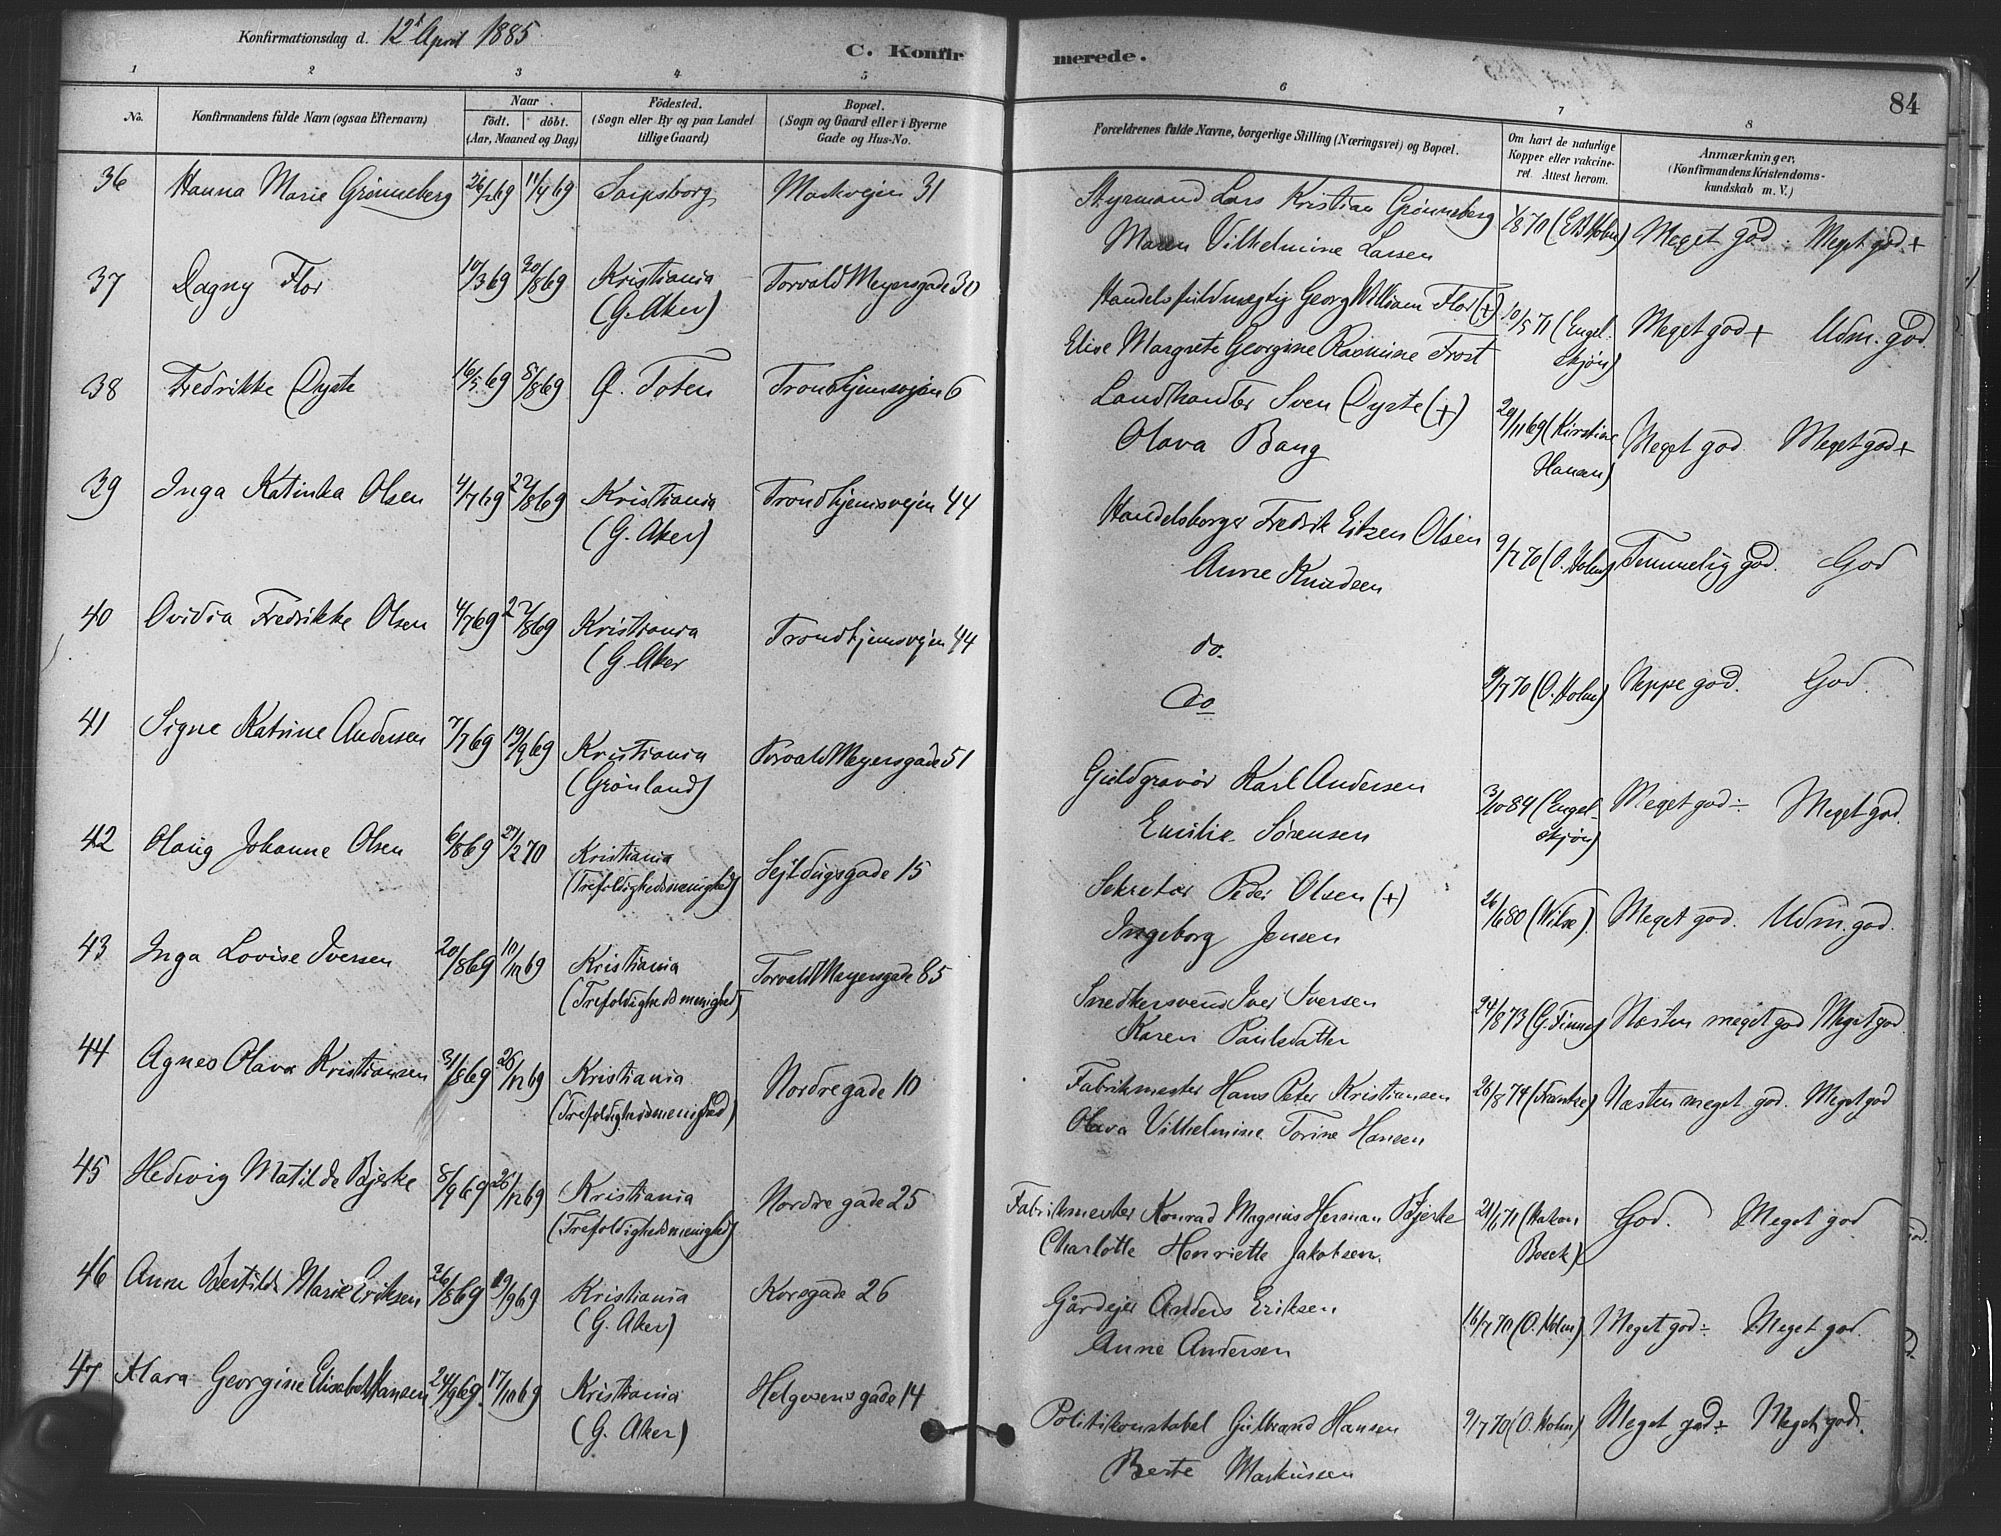 Konfirmationsdag d. 12te April 1885
C. Konfirmerede.
84
1 2 3 4 5 6 7 8
No. Konfirmandens fulde Navn (ogsaa Efternavn) Naar Födt. döbt. (Aar, Maaned og Dag) Födested. (Sogn eller By og paa Landet tillige Gaard) Bopæl. (Sogn og Gaard eller i Byerne Gade og Hus-No. Forældrenes fulde Navne, borgerlige Stilling (Næringsvei) og Bopæl. Om havt de naturlige Kopper eller vakcineret. Attest herom. Anmærkninger. (Konfirmandens Kristendomskundskab m. V.)
36 Hanna Marie Grønneberg 26/2 69 11/4 69 Sarpsborg Markvejen 31 Styrmand Lars Kristian Grønneberg 1/8 70 (E.B. Holm) Meget god. Meget god+
Maren Vilhelmine Larsen
37 Dagny Flor 10/3 69 20/8 69 Kristiania Torvald Meyersgade 30 Handelsfuldmægtig Georg William Flor (+) 10/5 71 (Engel- Meget god+ Udm. god.
(G. Aker) Elise Margrete Georgine Rasmine Frost skjøn)
38 Fredrikke Dyste 16/5 69 8/8 69 Ø. Toten Trondhjemsvejen 6 Landhandler Sven Dyste (+) 29/11 69 (Kirstine Meget god. Meget god+
Olava Bang Hansen)
39 Inga Katinka Olsen 4/7 69 22/8 69 Kristiania Trondhjemsvejen 44 Handelsborger Fredrik Eitzen Olsen 9/7 70 (O. Holm) Temmelig god. God
(G. Aker) Anne Knudsen
40 Ovidia Fredrikke Olsen 4/7 69 22/8 69 Kristiania Trondhjemsvejen 44 do. 9/7 70 (O. Holm) Neppe god. God.
(G. Aker do
41 Signe Katrine Andersen 7/7 69 19/9 69 Kristiania Torvald Meyersgade 51 Guldgravør Karl Andersen 3/10 84 (Engel- Meget god÷ Meget god.
(Grønland) Emilie Sørensen skjøn)
42 Olaug Johanne Olsen 6/8 69 27/2 70 Kristiania Sejldugsgade 15 Sekretær Peder Olsen (+) 26/6 80 (Wilse). Meget god. Udm. god.
(Trefoldighedsmenighed) Ingeborg Jensen
43 Inga Lovise Iversen 20/8 69 10/10 69 Kristiania Torvald Meyersgade 85 Snedkersvend Iver Iversen 24/8 73 (G. Finne) Næsten meget god Meget god.
(Trefoldighedsmenighed) Karen Paulsdatter
44 Agnes Olava Kristiansen 31/8 69 26/12 69 Kristiania Nordregade 10 Fabrikmester Hans Peter Kristiansen 26/8 74 (Frantze) Næsten meget god. Meget god
(Trefoldighedsmenighed) Olava Vilhelmine Torine Hansen
45 Hedvig Matilde Bjerke 8/9 69 26/12 69 Kristiania Nordre gade 25 Fabrikmester Konrad Magnus Herman Bjerke 21/6 71 (Hakon God. Meget god
(Trefoldighedsmenighed) Charlotte Henriette Jakobsen. Boeck)
46 Anna Bertilda Marie Eriksen 26/8 69 19/9 69 Kristiania Korsgade 26 Gårdejer Anders Eriksen 16/7 70 (O. Holm) Meget god÷ Meget god.
(G. Aker) Anne Andersen
47 Klara Georgine Elisabet Hansen 24/9 69. 17/10 69 Kristiania Helgesensgade 14 Politikonstabel Gulbrand Hansen 9/7 70 (O. Holm) Meget god÷ Meget god.
(G. Aker) Berte Markussen